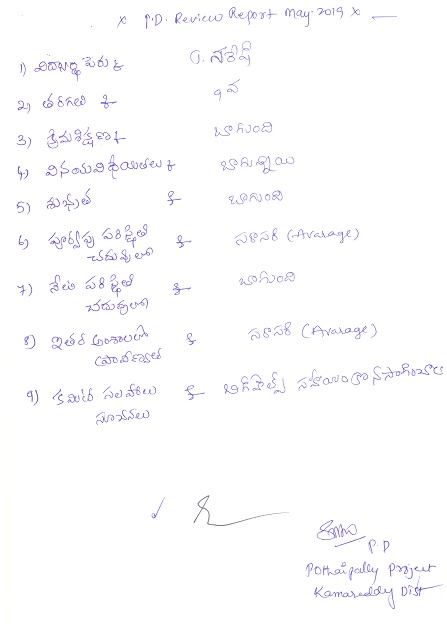 x P.D. Review Report May-2019 x
1) విద్యార్థి పేరు :- J. నరేష్
2) తరగతి :- 9 వ
3) క్రమశిక్షణ :- బాగుంది
4) వినయవిధేయతలు :- బాగున్నాయి
5) శుభ్రత :- బాగుంది
6) పూర్వపు పరిస్థితి :- సరాసరి (Avarage)
చదువులో
7) నేటి పరిస్థితి :- బాగుంది
చదువులో
8) ఇతర అంశాలలో :- సరాసరి (Avarage)
ప్రావీణ్యత
9) కమిటి సలహాలు :- బిగ్ హెల్ప్ సహాయం కొనసాగించాలి
సూచనలు
PD
Pothaipally Project
Kamareddy Dist